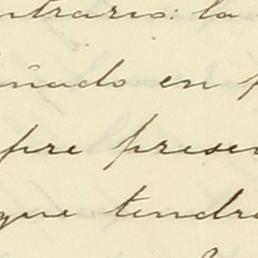 ntrario: la
inado en p
pre presen
que tendra